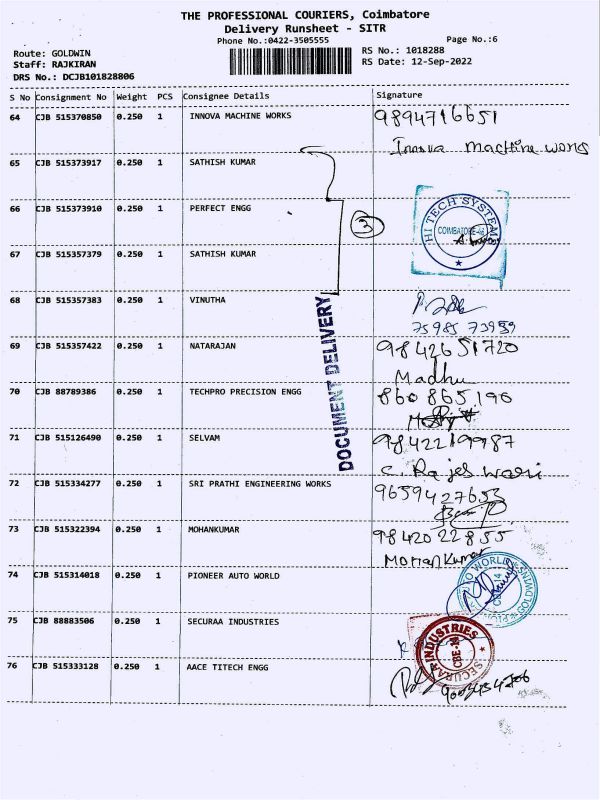 THE PROFESSIONAL COURIERS, Coimbatore
Delivery Runsheet - SITR
Phone No.:0422-3505555
Page No.:6
Route: GOLDWIN
RS No.: 1018288
Staff: RAJKIRAN
RS Date: 12-Sep-2022
DRS No.: DCJB101828806
S No Consignment No Weight PCS Consignee Details Signature
64 CJB 515370850 0.250 1 INNOVA MACHINE WORKS 9894716651
Innova machine works
65 CJB 515373917 0.250 1 SATHISH KUMAR
66 CJB 515373910 0.250 1 PERFECT ENGG
3
HI TECH SYSTEMS
COIMBATORE-14
67 CJB 515357379 0.250 1 SATHISH KUMAR
68 CJB 515357383 0.250 1 VINUTHA
75985 73959
DOCUMENT DELIVERY
69 CJB 515357422 0.250 1 NATARAJAN 9842651720
Madhu
70 CJB 88789386 0.250 1 TECHPRO PRECISION ENGG 860 865 190
71 CJB 515126490 0.250 1 SELVAM 9842219987
C. Rajeswari
72 CJB 515334277 0.250 1 SRI PRATHI ENGINEERING WORKS 9659427653
73 CJB 515322394 0.250 1 MOHANKUMAR 98420 22855
Mohan Kumar
74 CJB 515314018 0.250 1 PIONEER AUTO WORLD
75 CJB 88883506 0.250 1 SECURAA INDUSTRIES
SECURAA INDUSTRIES
CBE-14
76 CJB 515333128 0.250 1 AACE TITECH ENGG